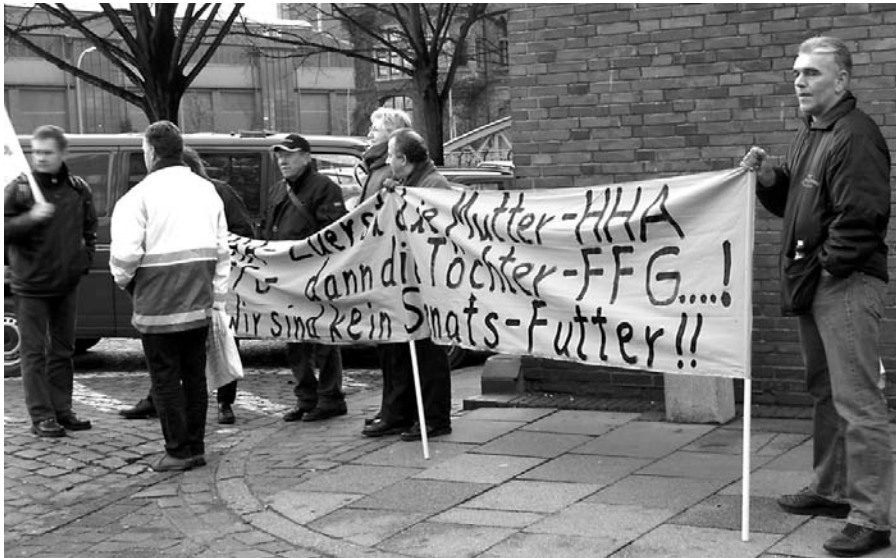 die Mutter-HHA
dann die Töchter-FFG....!
Wir sind kein Senats-Futter!!